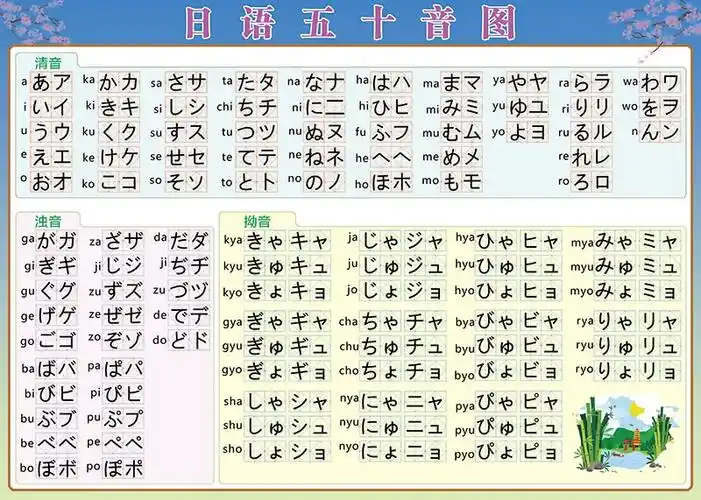 日语五十音图
清音
a あア ka かカ sa さサ ta たタ na なナ ha はハ ma まマ ya やヤ ra らラ wa わワ
i いイ ki きキ si しシ chi ちチ ni に二 hi ひヒ mi みミ yu ゆユ ri りリ wo をヲ
u うウ ku くク su すス tu つツ nu ぬヌ fu ふフ mu むム yo よヨ ru るル n んン
e えエ ke けケ se せセ te てテ ne ねネ he へヘ me めメ re れレ
o おオ ko こコ so そソ to とト no のノ ho ほホ mo もモ ro ろロ
浊音
ga がガ za ざザ da だダ
gi ぎギ ji じジ ji ぢヂ
gu ぐグ zu ずズ zu づヅ
ge げゲ ze ぜゼ de でデ
go ごゴ zo ぞゾ do どド
ba ばバ pa ぱパ
bi びビ pi ぴピ
bu ぶブ pu ぷプ
be べベ pe ぺペ
bo ぼボ po ぽポ
拗音
kya きゃキャ ja じゃジャ hya ひゃヒャ mya みゃミャ
kyu きゅキュ ju じゅジュ hyu ひゅヒュ myu みゅミュ
kyo きょキョ jo じょジョ hyo ひょヒョ myo みょミョ
gya ぎゃギャ cha ちゃチャ bya びゃビャ rya りゃリャ
gyu ぎゅギュ chu ちゅチュ byu びゅビュ ryu りゅリュ
gyo ぎょギョ cho ちょチョ byo びょビョ ryo りょリョ
sha しゃシャ nya にゃニャ pya ぴゃピャ
shu しゅシュ nyu にゅニュ pyu ぴゅピュ
sho しょショ nyo にょニョ pyo ぴょピョ